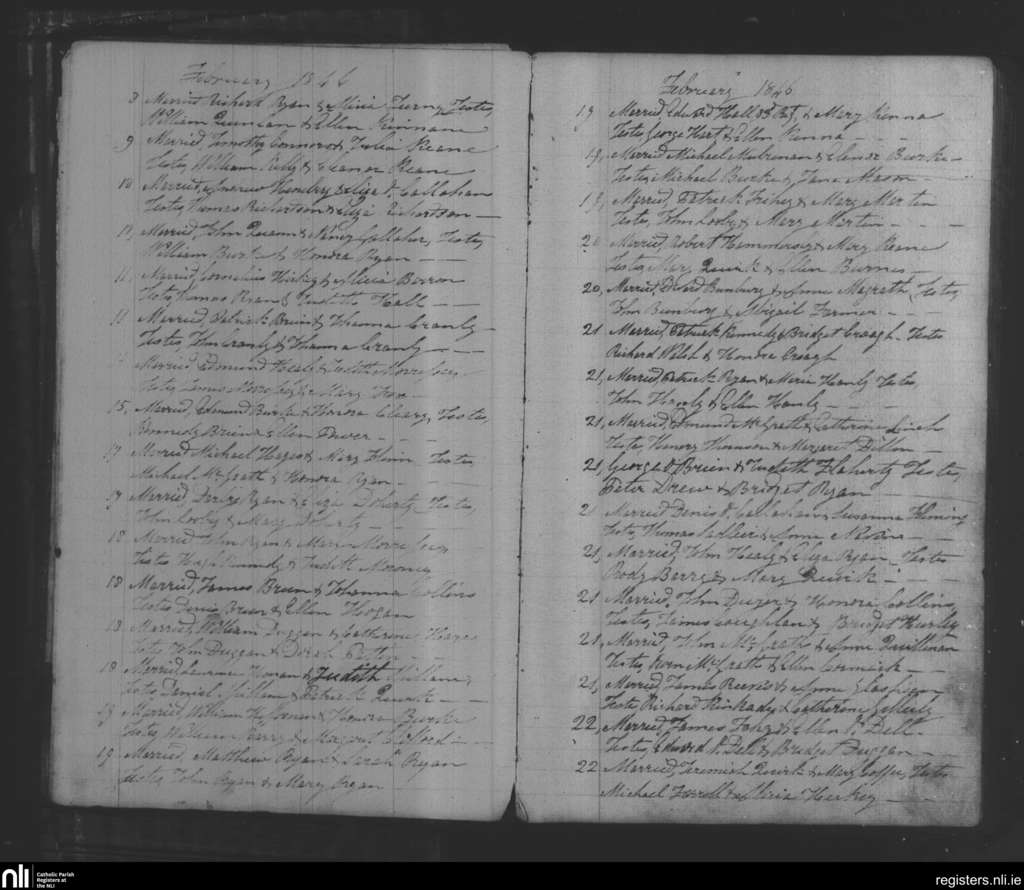 February 1846
3 Married Richard Ryan & Tierny Testes,
William Quinlan & Ellen Kinnane
9 Married, Timothy Connors & Julia Keane
Testes, William & Eleanor Keane
10 Married, Andrew Hendry & Eliza Callahan
Testes, Thomas Richardson & Eliza Richardson
Married, John & Nancy Gallaher, Testes,
William Burke & Honora Ryan
11 Married, Cornelius Hickey & Alicia Barron
Testes, Thomas Ryan & Judith Hall
11 Married, Patrick Brien & Johanna Cranly
Testes, John Cranly & Johanna Cranly
Married, Edmund & Judith Morrissey
Testes, James & Mary Fox
15, Married, Edmund Burke & Honora Cleary, Testes,
Kennedy Brien & Ellen Dwyer
17 Married Michael Hayes & Mary Testes
Michael McGrath & Honora Ryan
17 Married, Darby Ryan & Eliza Doherty Testes,
John Looby & Mary Doherty
18 Married John Ryan & Maria Morrissey
Testes Hugh Kennedy & Judith Mooney
18 Married, James Bruen & Johanna Collins
Testes Denis Bruen & Ellen Hogan
18 Married, William Duggan & Catherine Hayes
Testes, John Duggan & Sarah
18 Married, & Judith
Testes Daniel & Patrick Quirk
19 Married, William Heffernan & Honora Burke
Testes, William Barry & Margaret
19 Married, Matthew Ryan & Sarah Ryan
Testes, John Ryan & Mary Ryan
February 1846
19 Married, Edward Hall & Mary Kenna
Testes, George Hart & Ellen Kenna
19, Married Michael Mulrenan & Elenor Burke
Testes, Michael Burke & Jane Mason
19, Married, Patrick Fahey & Mary Martin
Testes, John Looby & Mary Martin
20 Married, Robert Hemmersey & Mary Keane
Testes, Mary Quirk & Ellen Burnes
20, Married, David Bunbury & Anne Magrath, Testes,
John Bunbury & Abigail Farmer
21 Married Patrick Kennedy & Bridget Creagh Testes
Richard Welsh & Honora Creagh
21, Married, Patrick Ryan & Maria Hanly Testes,
John Hanly & Ellen Hanly
21, Married, Edmund McGrath & Catherine Leish
Testes, Henry & Margaret Dillon
21, George O'Brien & Judith Flaherty Testes,
Peter Drew & Bridget Ryan
21 Married Denis O'Callaghan & Susanna Fleming
Testes, Thomas & Anne
21, Married, John & Eliza Ryan Testes
Rody Berry & Mary Quirk
21 Married, John Dwyer & Honora Collins,
Testes, James Coughlan & Bridget Hurley
21, Married, John McGrath & Anne Quillinan
Testes, McGrath & Ellen Cormick
21, Married, James & Anne
Testes Richard Kinkady & Catherine
22, Married, James Fahey & Ellen O'Dell
Testes, Edward O'Dell & Bridget Duggan
22 Married, Jeremiah Quirk & Mary Coffee, Testes
Michael Farrell & Maria Hickey
nli
Catholic Parish
Registers at
the NLI
registers.nli.ie